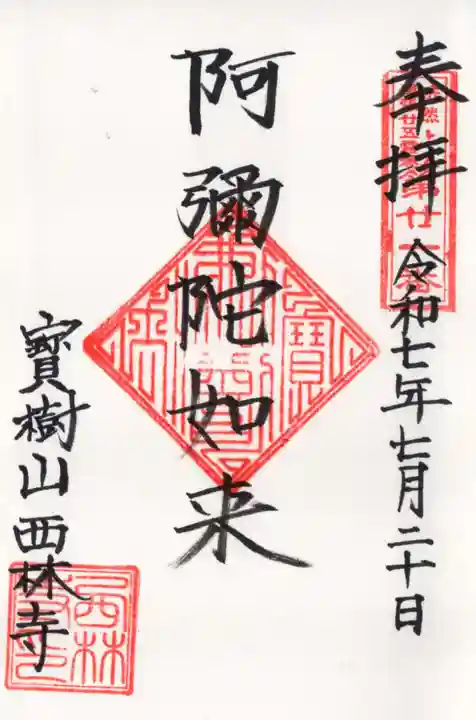 奉拝
令和七年七月二十日
阿彌陀如来
寶樹山西林寺
西林